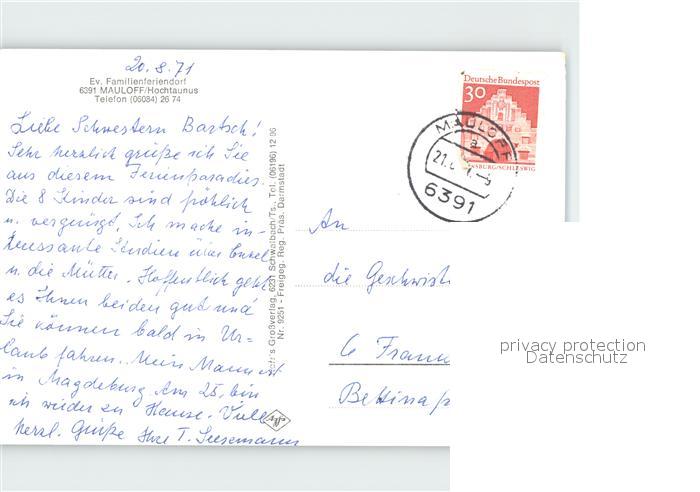 20.8.71
Ev. Familienferiendorf
6391 MAULOFF/Hochtaunus
Telefon (06084) 26 74
Liebe Schwestern Bartsch!
Sehr herzlich grüße ich Sie
aus diesem Ferienparadies.
Die 8 Kinder sind fröhlich
u. vergnügt. Ich mache in-
teressante Studien über Enkel
u. die Mütter. Hoffentlich geht
es Ihnen beiden gut und
Sie können bald in Ur-
laub fahren. Mein Mann ist
in Magdeburg. Am 25. bin
ich wieder zu Hause. Viele
herzl. Grüße Ihre T. Seesemann
Großverlag, 6231 Schwalbach/Ts., Tel. (06196) 12 06
Nr. 9251 - Freigeg. Reg. Präs. Darmstadt
Deutsche Bundespost
30
ENSBURG/SCHLESWIG
MAULOFF
a
6391
An
die Geschwist
6 Frank
Bettinap
privacy protection
Datenschutz